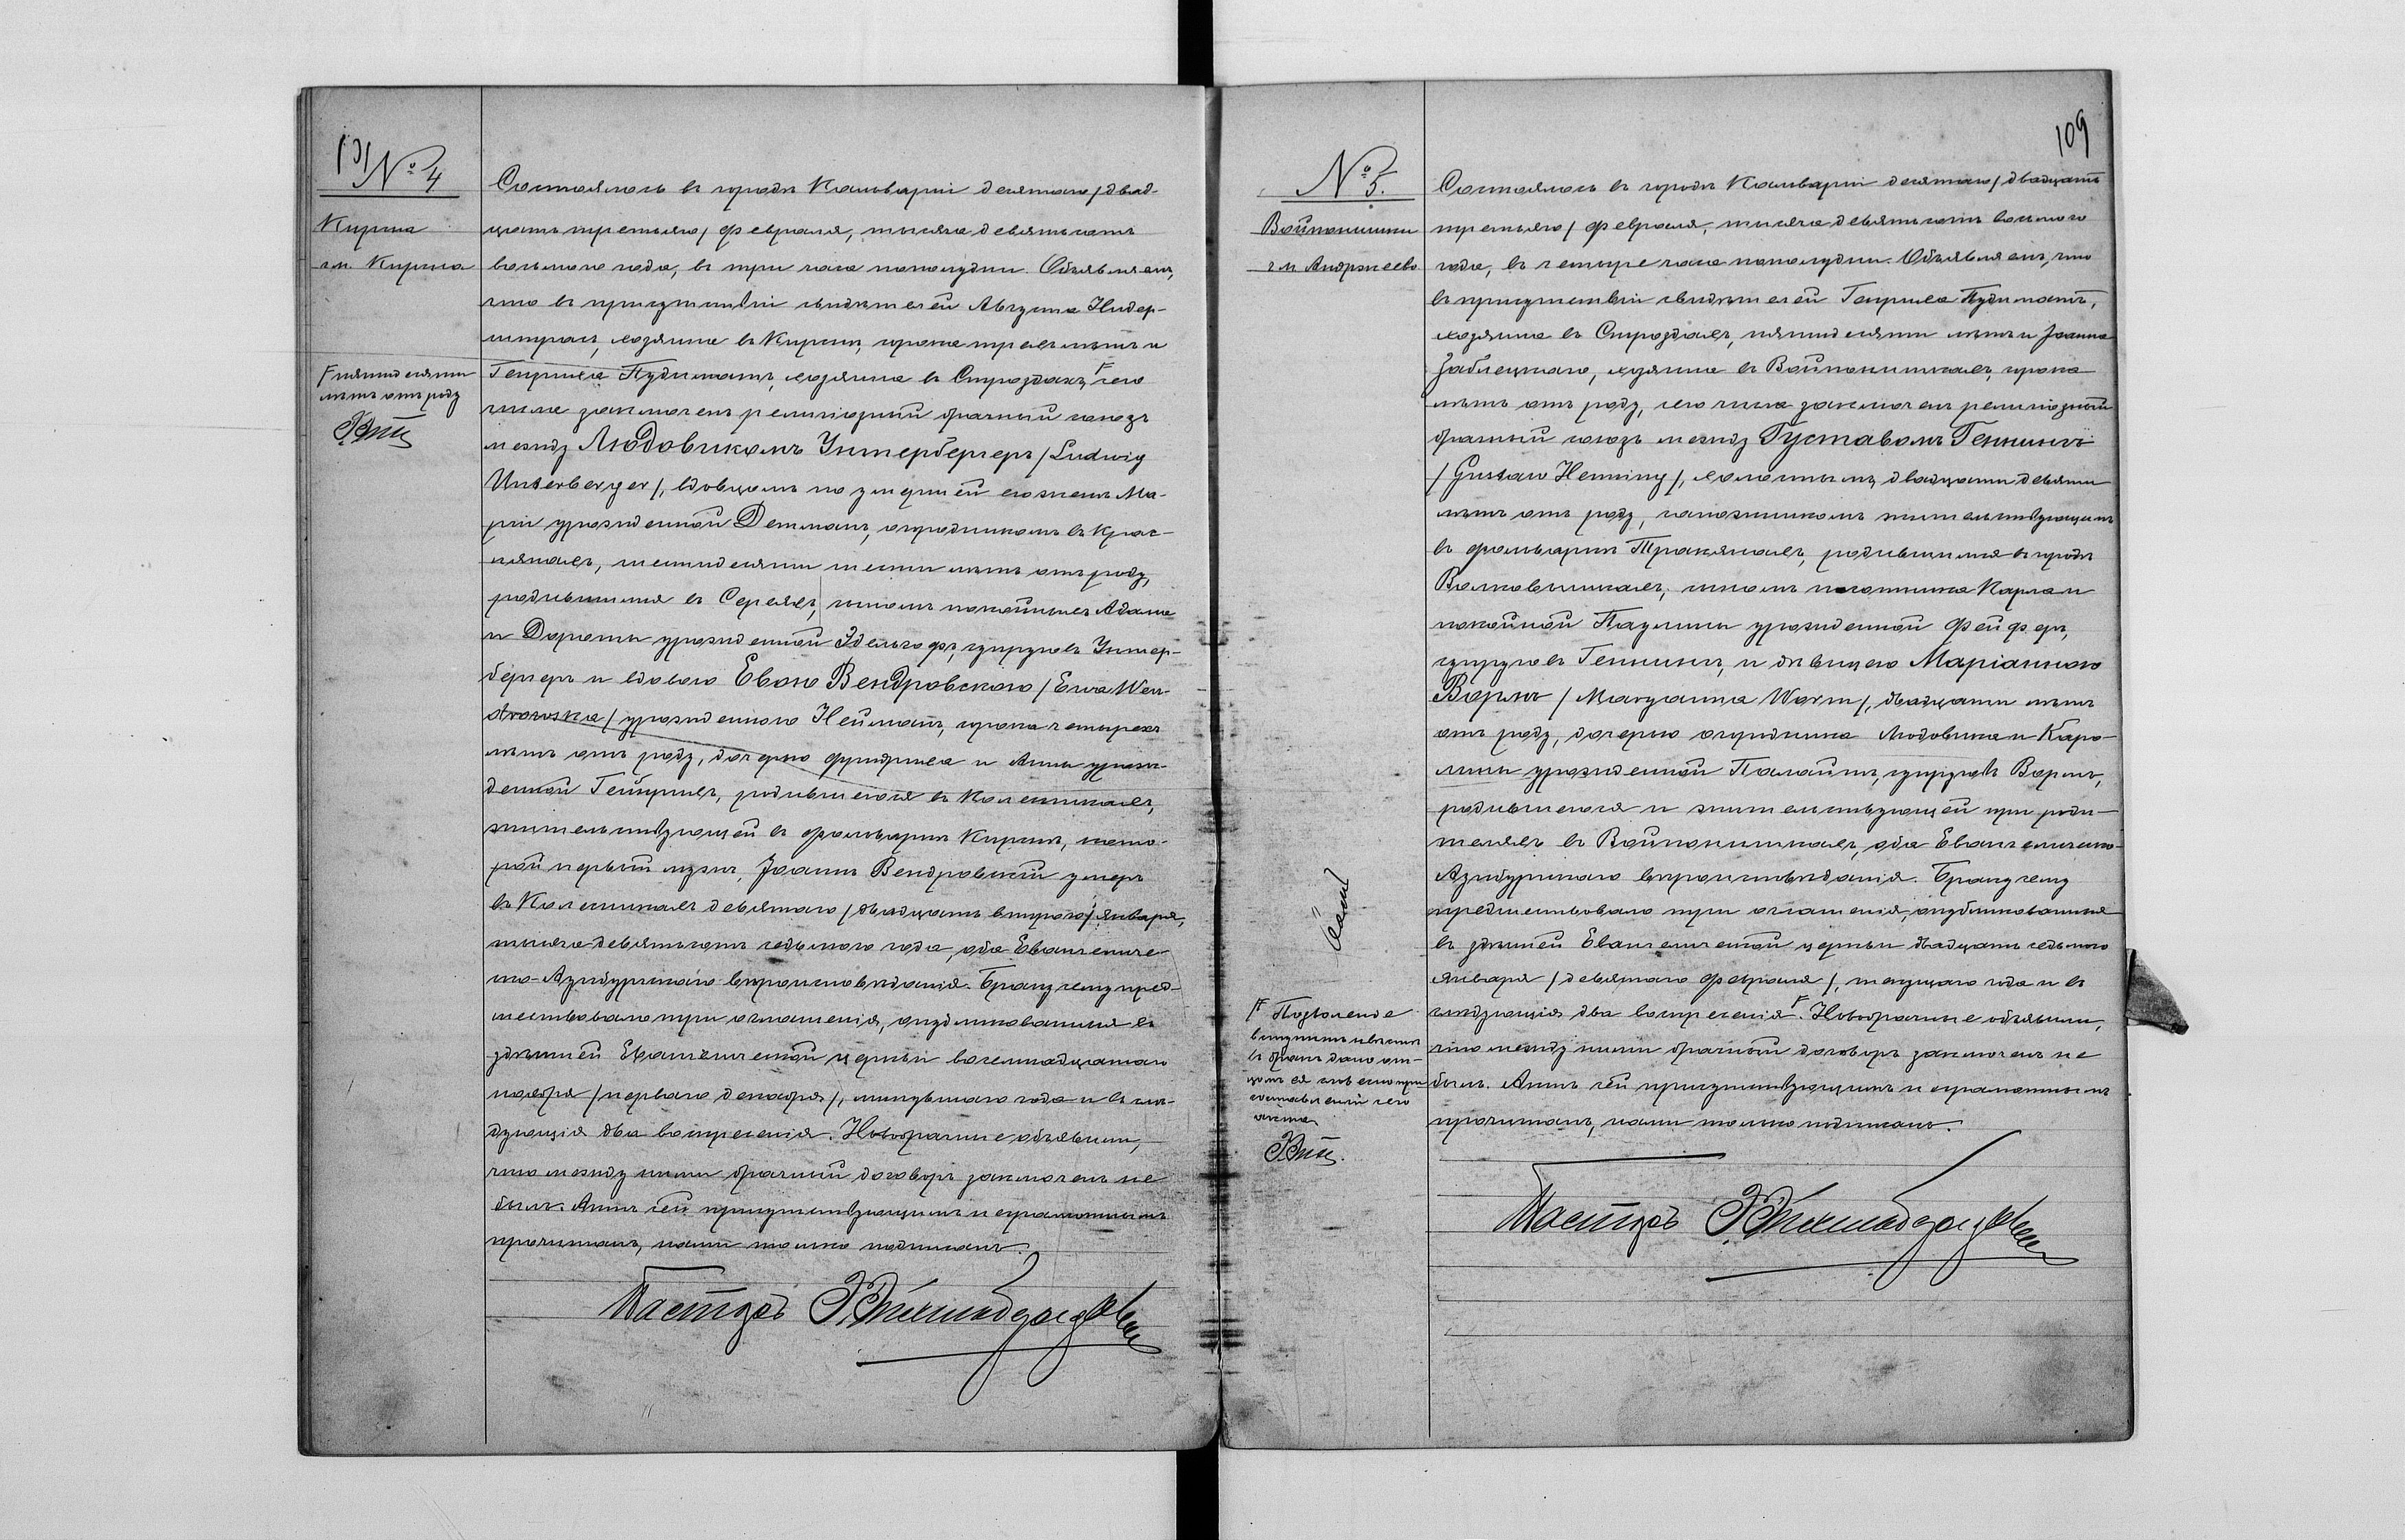 № 4
Кирша
гм. Кирша
Состоялось въ городѣ Кальваріи десятаго /двад-
цать третьяго/ февраля, тысяча девятьсотъ
восьмого года, въ три часа пополудни. Объявляемъ,
что въ присутствіи свидѣтелей Августа Нидер-
штрасъ, хозяина въ Киршѣ, сорока трехъ лѣтъ и
Генриха Пудимать, хозяина въ Стрôздахъ, F сего
F пятидесяти
лѣтъ отъ роду
числа заключенъ религіозный брачный союзъ
между Людовикомъ Унтербергеръ /Ludwig
Unterberger/, вдовцомъ по умершей его женѣ Ма-
ріи урожденной Детманъ, огородникомъ въ Крас-
нянахъ, шестидесяти шести лѣтъ отъ роду,
родившимся въ Сереяхъ, сыномъ покойныхъ Адама
и Дороты урожденной Эдельгофъ, супруговъ Унтер-
бергеръ и вдовою Евою Вендровскою /Ewa Wen-
drowska/ урожденною Нейманъ, сорока четырехъ
лѣтъ отъ роду, дочерью Фридриха и Анны урож-
денной Гейнрихъ, родившеюся въ Колешникахъ,
жительствующей въ фольваркѣ Киршѣ, кото-
рой первый мужъ, Іоаннъ Вендровскій умеръ
въ Колешникахъ девятаго /двадцать второго/ января,
тысяча девятьсотъ седьмого года, оба Евангеличе-
ско-Аугсбургскаго вѣроисповѣданія. Браку сему пред-
шествовало три оглашенія, опубликованныя въ
здѣшней Евангелической церкви восемнадцатаго
ноября /перваго декабря/, минувшаго года и въ слѣ-
дующія два воскресенія. Новобрачные объявили,
что между ними брачный договоръ заключенъ не
былъ. Актъ сей присутствующимъ и неграмотнымъ
прочитанъ, нами только подписанъ.
Пасторъ
109
№ 5.
Войпонишки
гм Андржеево
Состоялось въ городѣ Кальваріи десятаго /двадцать
третьяго/ февраля, тысяча девятьсотъ восьмого
года, въ четыре часа пополудни. Объявляемъ, что
въ присутствіи свидѣтелей Генриха Пудимать,
хозяина въ Строздахъ, пятидесяти лѣтъ и Іоанна
Заблецкаго, хозяина въ Войпонишкахъ, сорока
лѣтъ отъ роду, сего числа заключенъ религіозный
брачный союзъ между Густавомъ Геннингъ
/Gustaw Henning/, холостымъ, двадцати девяти
лѣтъ отъ роду, сапожникомъ жительствующимъ
въ фольваркѣ Тракянахъ, родившимся въ городѣ
Волковышкахъ, сыномъ Карла и
покойной Паулины урожденной Фейферъ,
супруговъ Геннингъ, и дѣвицею Маріанною
Вормъ /Maryanna Worm/, двадцати лѣтъ
отъ роду, дочерью огородника Людовика и Каро-
лины урожденной Палайтъ, супруговъ Вормъ,
родившеюся и жительствующей при роди-
теляхъ въ Войпонишкахъ, оба Евангелическо-
Аугсбургскаго вѣроисповѣданія. Браку сему
предшествовало три оглашенія, опубликованныя
въ здѣшней Евангелической церкви двадцать седьмого
января /девятаго февраля/, текущаго года и въ
слѣдующія два воскресенія F. Новобрачные объявили,
что между ними брачный договоръ заключенъ не
былъ. Актъ сей присутствующимъ и неграмотнымъ
прочитанъ, нами только подписанъ.
F Позволеніе
въ бракъ дано от-
цомъ ея словесно при
составленіи сего
акта
Пасторъ